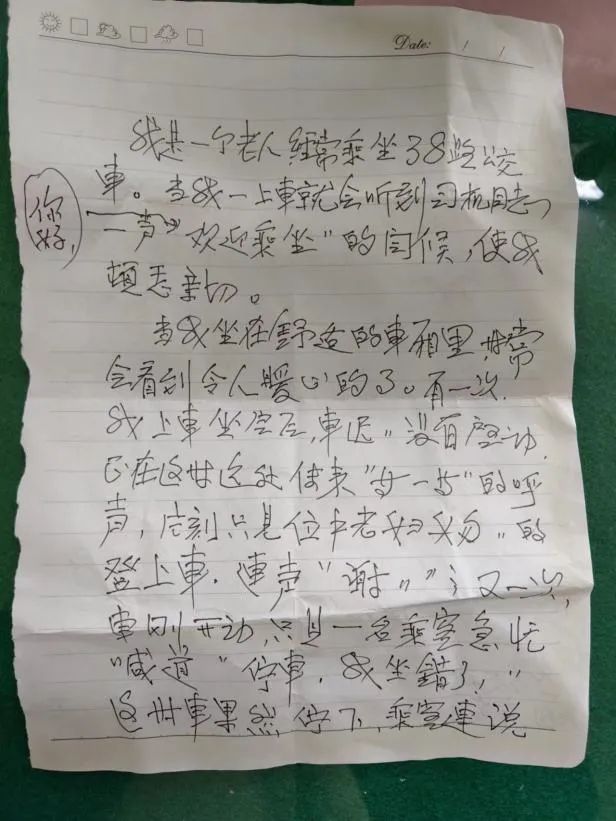 Date: / /
我是一个老人經常乘坐38路公交
車。当我一上車就会听到司机同志
你好,
一声"欢迎乘坐"的问候,使我
頓悉亲切。
当我坐在舒适的車厢里,时常
会看到令人暖心的了。有一次,
我上車坐定后,車迟〃没有启动,
正在这时远处传来"等一等"的呼
声,后刻只見位中老妇匆〃的
登上車,連声"謝〃";又一次,
車刚开动,只見一名乘客急忙
"喊道"停車,我坐錯了,"
这时車果然停下,乘客連说